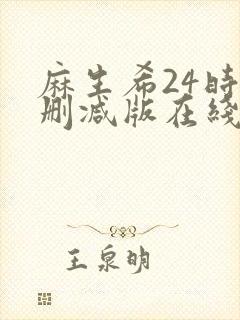 麻生希24時
删减版在綫
王泉明